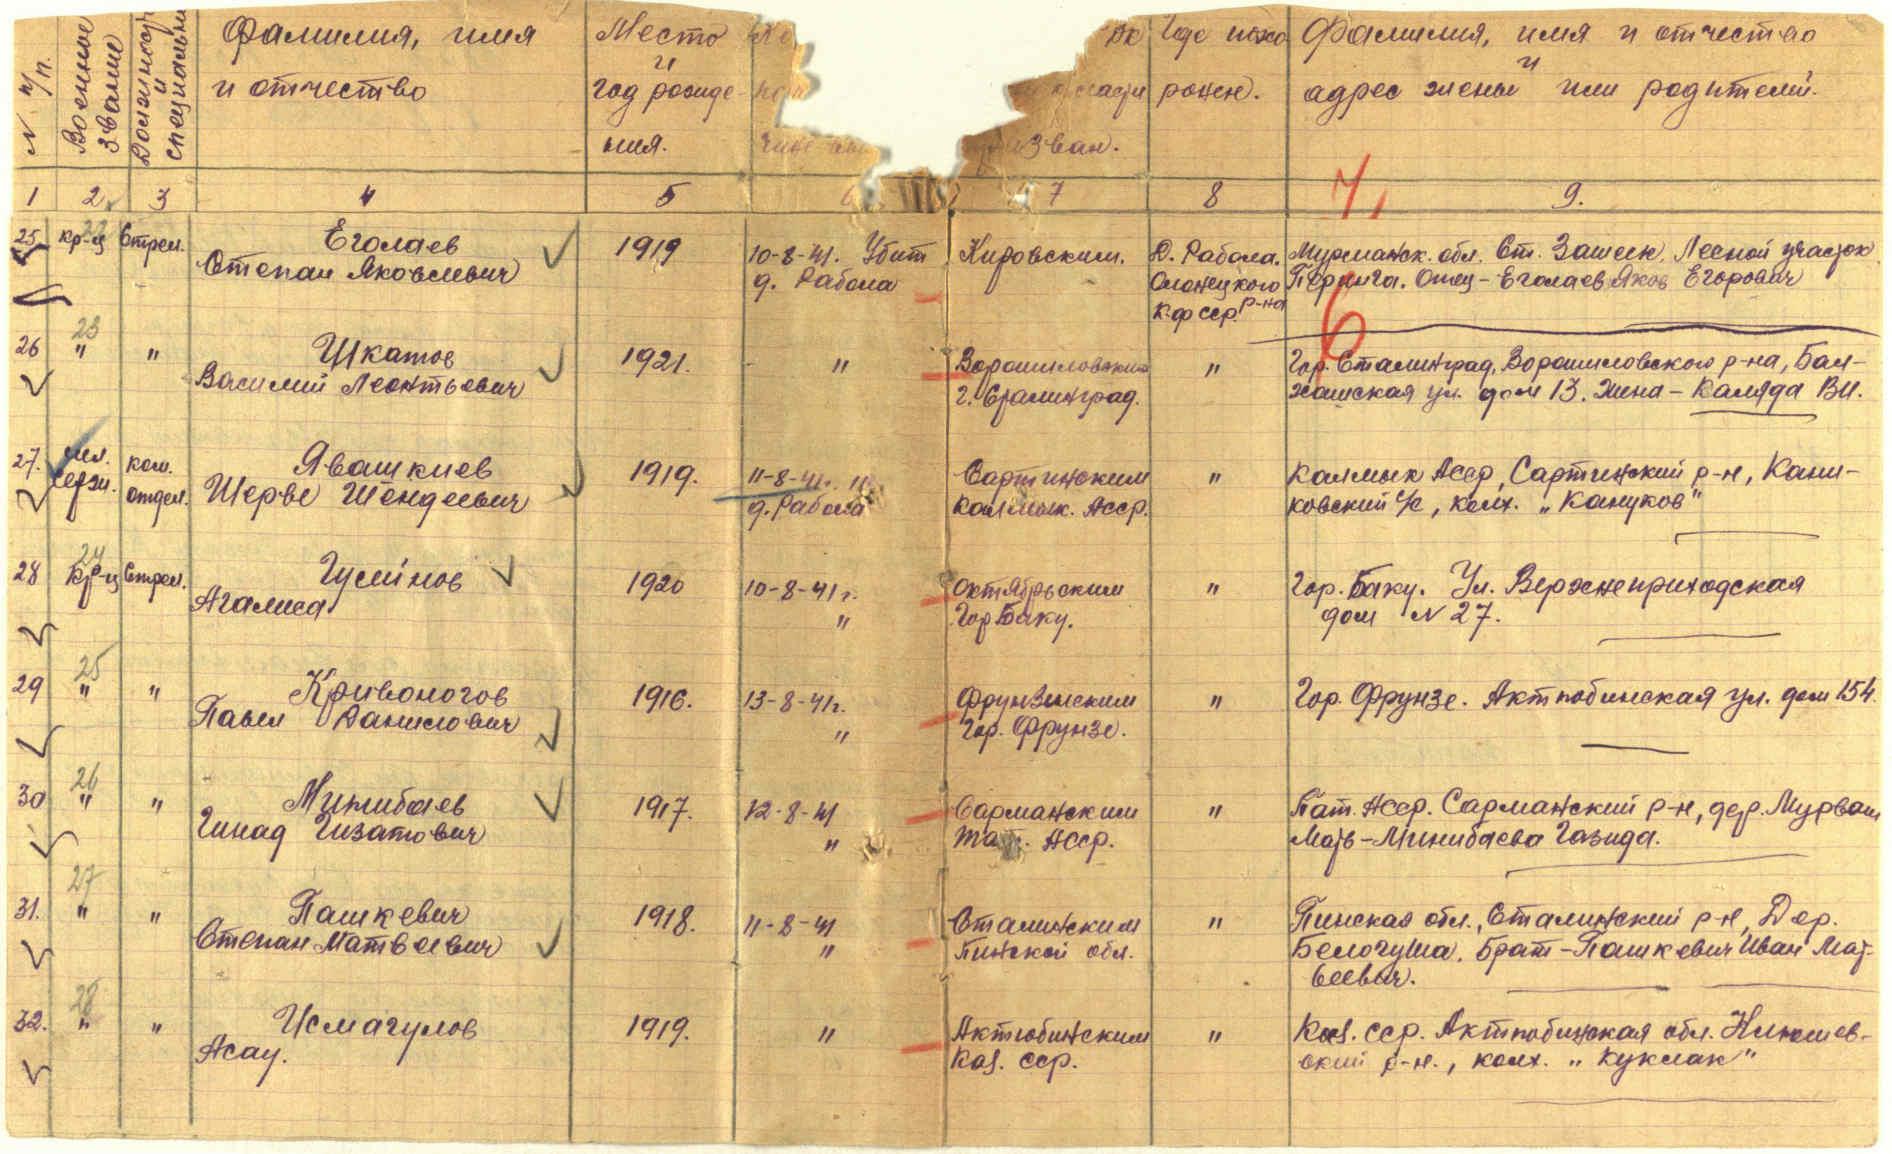 N п/п. Военное звание Должность и специальн. Фамилия, имя и отчество Место и год рождения. Где похоронен. Фамилия, имя и отчество и адрес жены или родителей.
1 2 3 4 5 6 7 8 9.
7, 6
25 22 кр-ц Стрел. Еголаев 1919 10-8-41. Убит Кировским. Д. Рабола. Мурманск. обл. Ст. Зашеек, Лесной участок
Степан Яковлевич д. Рабола Олонецкого Перинга. Отец - Еголаев Яков Егорович
К-ф сср. р-на
26 23 " " Шкатов 1921. - " Ворошиловским " Гор. Сталинград, Ворошиловского р-на, Бал-
Василий Леонтьевич г. Сталинград. хашская ул. дом 13. Жена - Каляда В.И.
27. мл. ком. Явашкиев 1919. 11-8-41г. Сарпинским " Калмык Асср, Сарпинский р-н, Кани-
сержн. отдел. Шерве Шендеевич д. Рабола Калмык. Асср. ковский с/с, колх. „Кануков"
28 24 Кр-ц Стрел. Гусейнов 1920 10-8-41г. Октябрьским " Гор. Баку. Ул. Верхнеприходская
Агалиса " Гор Баку. дом N 27.
29 25 " " Кривоногов 1916. 13-8-41г. Фрунзенским " Гор. Фрунзе. Актюбинская ул. дом 154.
Павел Данилович " Гор. Фрунзе.
30 26 " " Минибаев 1917. 12-8-41 Сармановским " Тат. Асср. Сармановский р-н, дер.
Гинад Гизатович " Тат. Асср. Мать - Минибаева Газида.
31. 27 " " Пашкевич 1918. 11-8-41 Сталинским " Пинская обл., Сталинский р-н, Дер.
Степан Матвеевич " Пинской обл. Белогуша. Брат - Пашкевич Иван Мат-
веевич.
32. 28 " " Исмагулов 1919. " Актюбинским " Каз. сср. Актюбинская обл.
Асау. Каз. сср. ский р-н., колх. „Куклак"